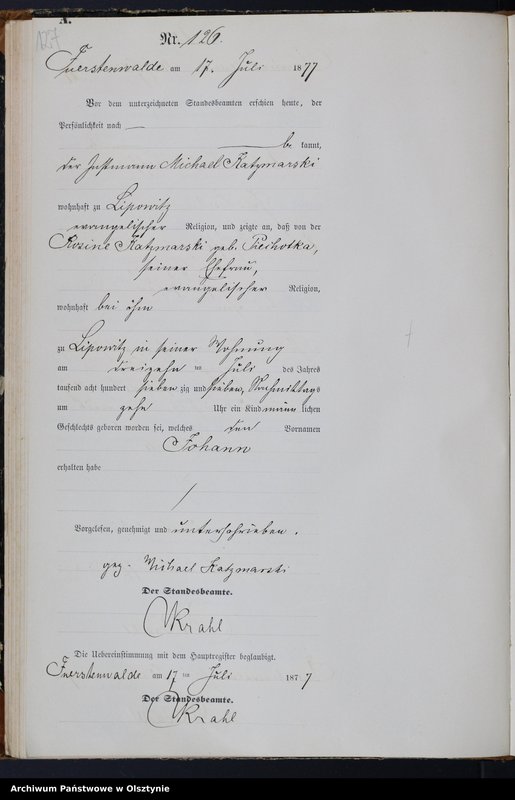 A.
127
Nr. 126.
Fuerstenwalde am 17. Juli 1877
Vor dem unterzeichneten Standesbeamten erschien heute, der
Persönlichkeit nach
be kannt,
der Instmann Michael Katzmarski
wohnhaft zu Lipowitz
evangelischer Religion, und zeigte an, daß von der
Rosine Katzmarski geb. Piechotka,
seiner Ehefrau,
evangelischer Religion,
wohnhaft bei ihm
zu Lipowitz in seiner Wohnung
am dreizehn ten Juli des Jahres
tausend acht hundert sieben zig und sieben, Nachmittags
um zehn Uhr ein Kind männ lichen
Geschlechts geboren worden sei, welches den Vornamen
Johann
erhalten habe
Vorgelesen, genehmigt und unterschrieben.
gez. Michael Katzmarski
Der Standesbeamte.
Krahl
Die Uebereinstimmung mit dem Hauptregister beglaubigt.
Fuerstenwalde am 17 ten Juli 1877
Der Standesbeamte.
Krahl
Archiwum Państwowe w Olsztynie